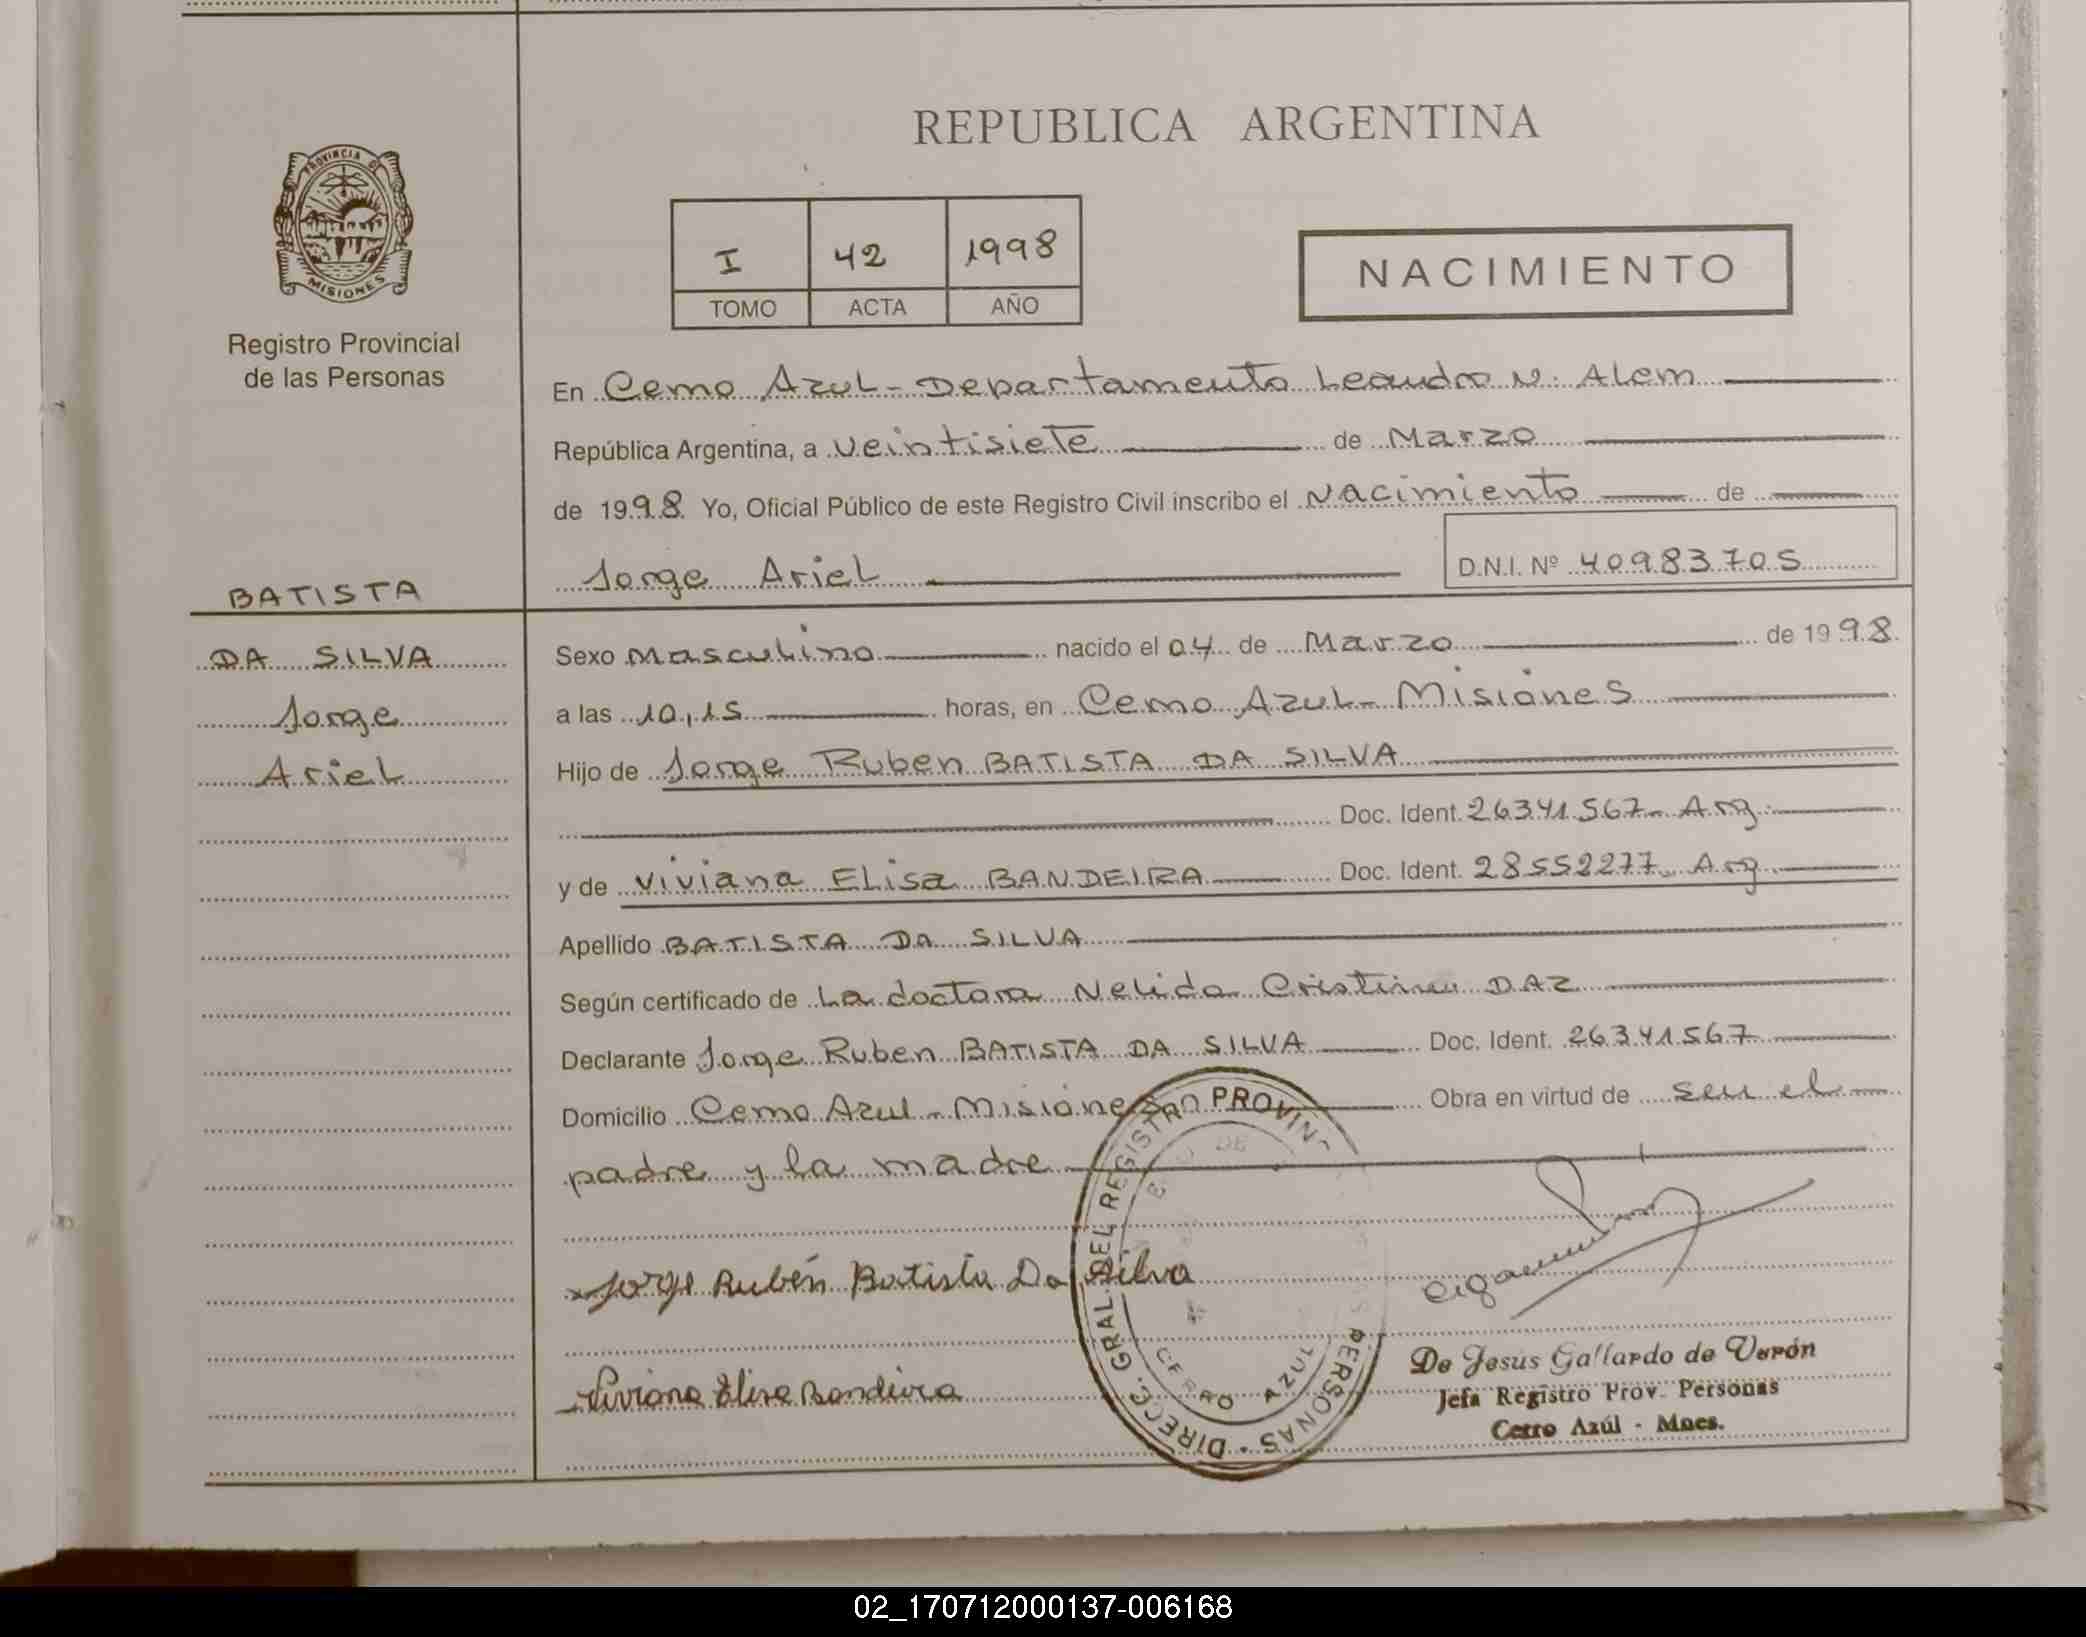 PROVINCIA DE
MISIONES
Registro Provincial
de las Personas
BATISTA
DA SILVA
Jorge
Ariel
REPUBLICA ARGENTINA
I 42 1998
TOMO ACTA AÑO
NACIMIENTO
En Cerro Azul - Departamento Leandro N. Alem
República Argentina, a veintisiete de Marzo
de 1998 Yo, Oficial Público de este Registro Civil inscribo el Nacimiento de
Jorge Ariel D.N.I. Nº 40983705
Sexo Masculino nacido el 04 de Marzo de 1998
a las 10,15 horas, en Cerro Azul - Misiones
Hijo de Jorge Ruben BATISTA DA SILVA
Doc. Ident. 26341567 - Arg.
y de Viviana Elisa BANDEIRA Doc. Ident. 28552277 - Arg.
Apellido BATISTA DA SILVA
Según certificado de La doctora Nelida Cristina DAZ
Declarante Jorge Ruben BATISTA DA SILVA Doc. Ident. 26341567
Domicilio Cerro Azul - Misiones Obra en virtud de ser el
padre y la madre
Jorge Rubén Batista Da Silva
Viviana Elisa Bandeira
DIREC. GRAL. DEL REGISTRO PROVINC PERSONAS
CERRO AZUL
De Jesús Gallardo de Verón
Jefa Registro Prov. Personas
Cerro Azúl - Mnes.
02_170712000137-006168